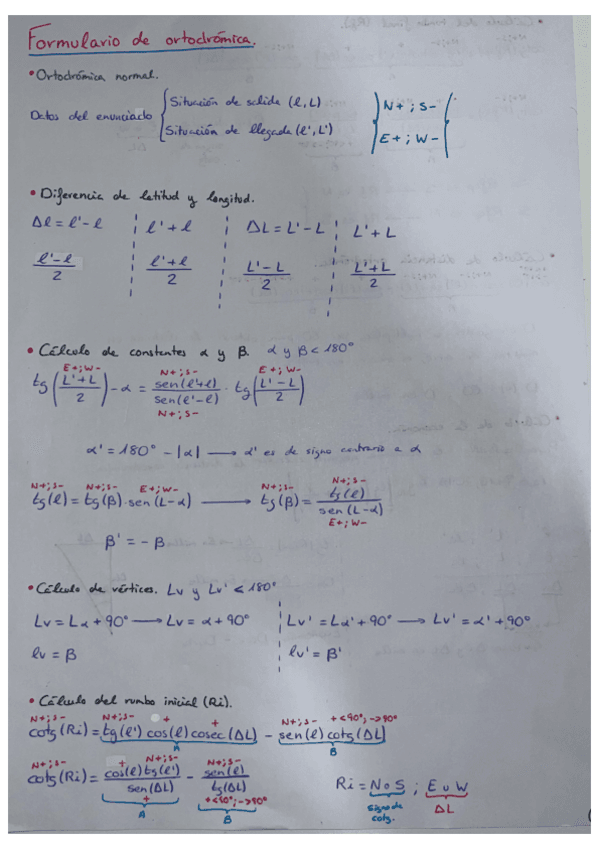 Formulario de ortodrómica.
• Ortodrómica normal.
Datos del enunciado { Situación de salida (l, L)
Situación de llegada (l', L')
N+ ; S-
E+ ; W-
• Diferencia de latitud y longitud.
Δl = l' - l | l' + l | ΔL = L' - L | L' + L
(l' - l)/2 | (l' + l)/2 | (L' - L)/2 | (L' + L)/2
• Cálculo de constantes α y β. α y β < 180°
E+; W- N+; S- E+; W-
tg((L' + L)/2) - α = sen(l'+l)/sen(l'-l) · tg((L' - L)/2)
N+; S-
α' = 180° - |α| → α' es de signo contrario a α
N+; S- N+; S- E+; W- N+; S- N+; S-
tg(l) = tg(β) · sen(L-α) → tg(β) = tg(l)/sen(L-α)
E+; W-
β' = - β
• Cálculo de vértices. Lv y Lv' < 180°
Lv = Lα + 90° → Lv = α + 90° | Lv' = Lα' + 90° → Lv' = α' + 90°
lv = β | lv' = β'
• Cálculo del rumbo inicial (Ri).
N+; S- N+; S- + + N+; S- +<90°; ->90°
cotg(Ri) = tg(l') cos(l) cosec(ΔL) - sen(l) cotg(ΔL)
A B
N+; S- + N+; S- N+; S-
cotg(Ri) = cos(l) tg(l')/sen(ΔL) - sen(l)/tg(ΔL)
+ +<90°; ->90°
A B
Ri = N o S ; E u W
signo de cotg. ΔL